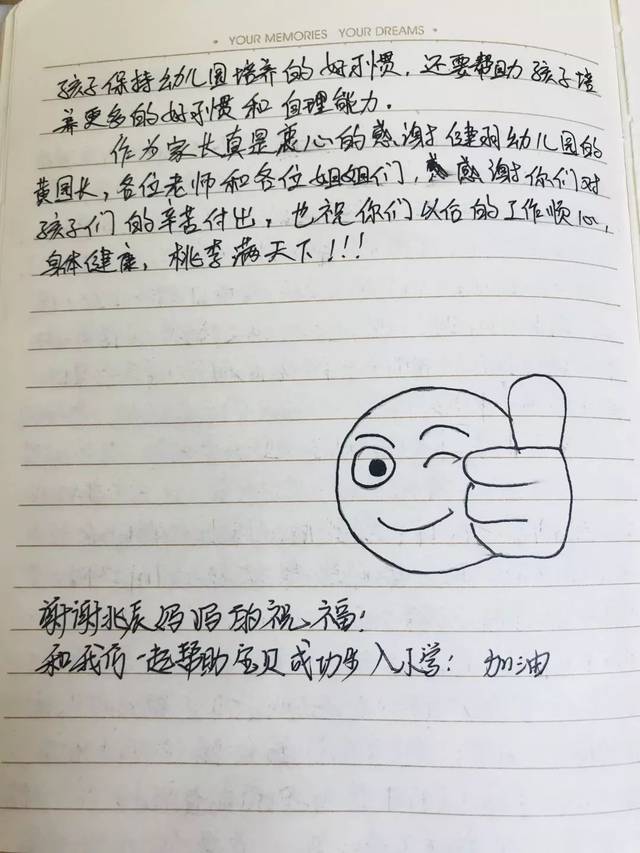 • YOUR MEMORIES YOUR DREAMS •
孩子保持幼儿园培养的好习惯，还要帮助孩子培
养更多的好习惯和自理能力.
作为家长真是衷心的感谢健羽幼儿园的
黄园长，各位老师和各位姐姐们，感谢你们对
孩子们的辛苦付出，也祝你们以后的工作顺心,
身体健康，桃李满天下!!!
谢谢兆辰妈妈的祝福!
和我们一起帮助宝贝成功步入小学! 加油